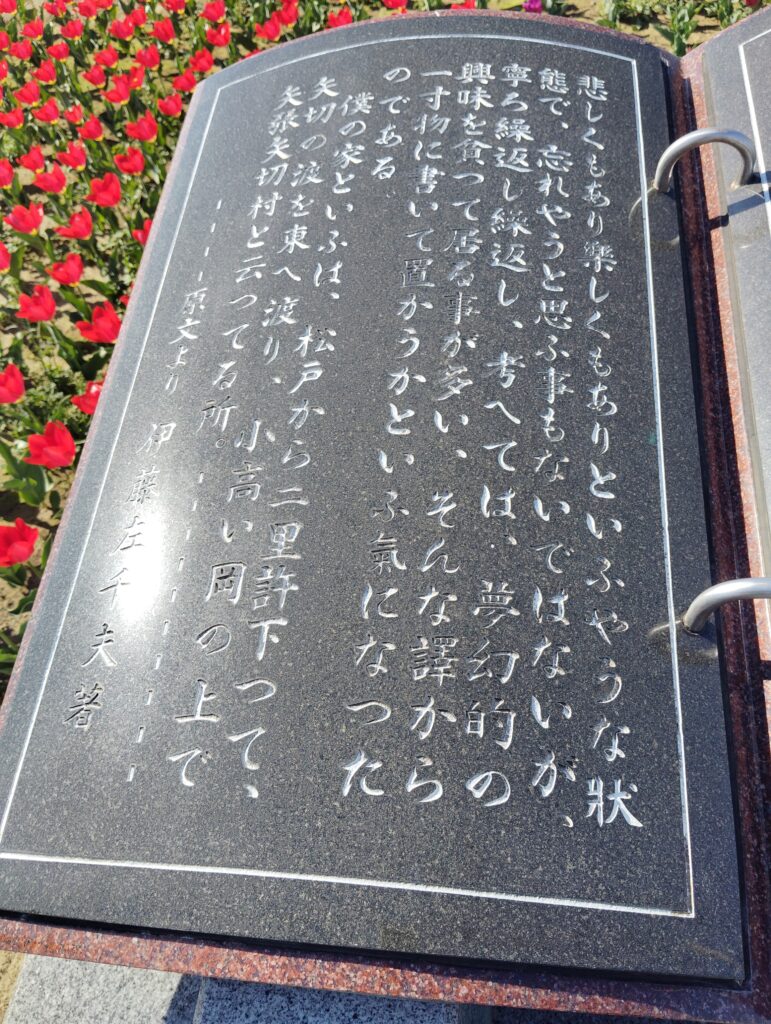 悲しくもあり樂しくもありといふやうな狀
態で、忘れやうと思ふ事もないではないが、
寧ろ繰返し繰返し、考へては、夢幻的の
興味を貪つて居る事が多い、そんな譯から
一寸物に書いて置かうかといふ氣になつた
のである。
僕の家といふは、松戸から二里許下つて、
矢切の渡を東へ渡り、小高い岡の上で
矢張矢切村と云つてる所。
原文より
伊藤左千夫著